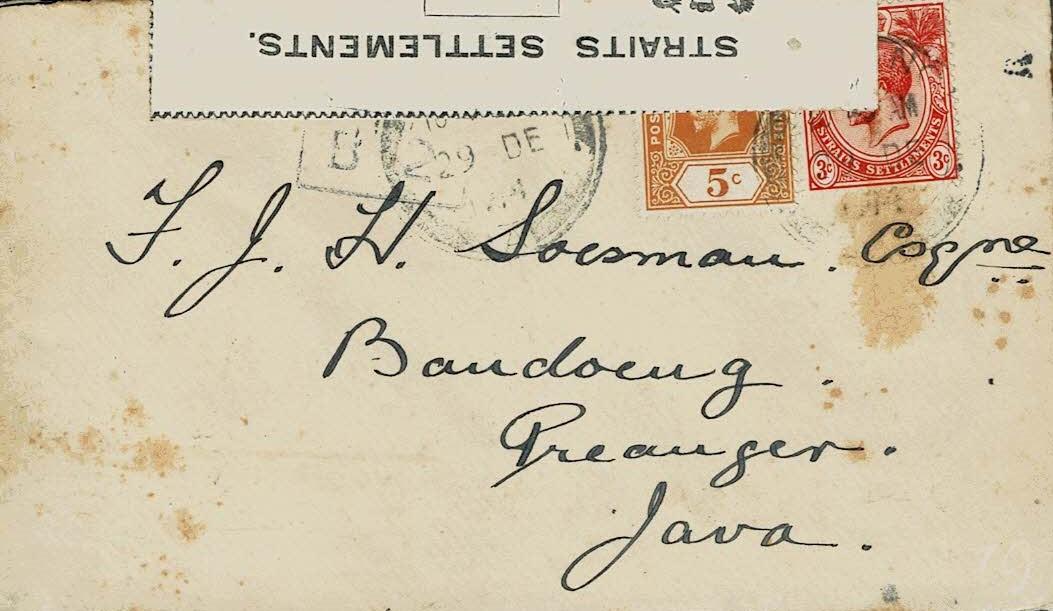 STRAITS SETTLEMENTS.
B
2
29 DE
POS
5c
STRAITS SETTLEMENTS
3c 3c
F. J. H. Soesman. Esqre
Bandoeng.
Preanger.
Java.